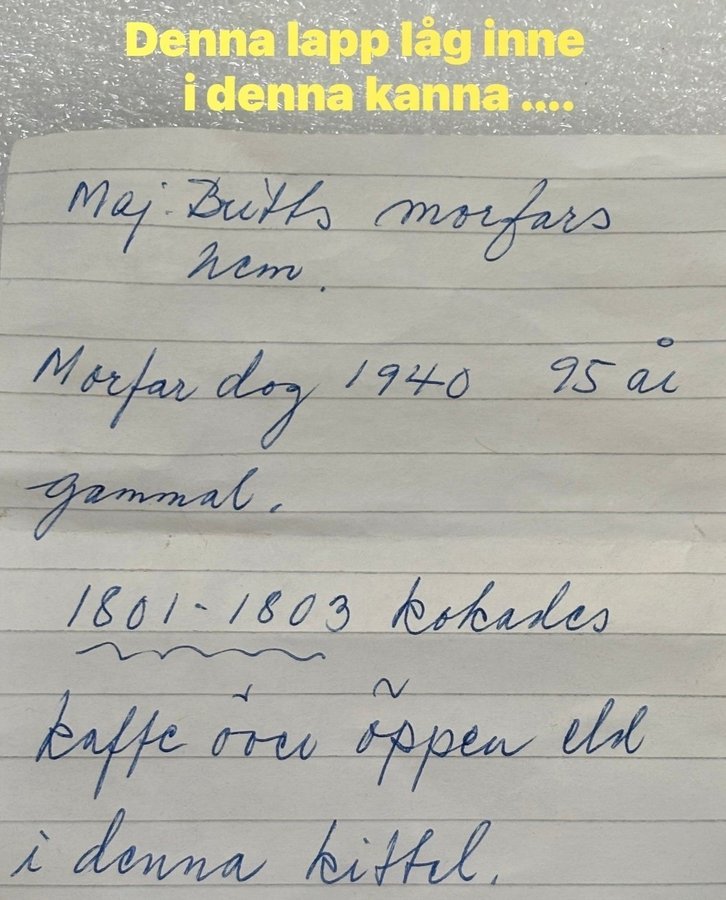 Denna lapp låg inne
i denna kanna ....
Maj-Britts morfars
hem.
Morfar dog 1940 95 år
gammal.
1801-1803 kokades
kaffe över öppen eld
i denna kittel.